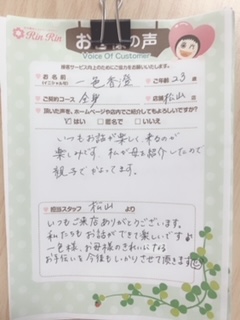 Rin Rin
お客様の声
Voice Of Customer
お名前
一色香澄
ご年齢 23 歳
ご契約コース 全身
店舗 松山
頂いた声を、ホームページや店内でご紹介してもよろしいですか?
はい 匿名で いいえ
いつもお話が楽しく、来るのが
楽しみです。私が母を紹介したので
親子でかよってます。
担当スタッフ 松山 より
いつもご来店ありがとうございます。
私たちもお話ができて楽しいです♪
一色様、お母様のきれいになる
お手伝いを今後もしっかりさせて頂きます